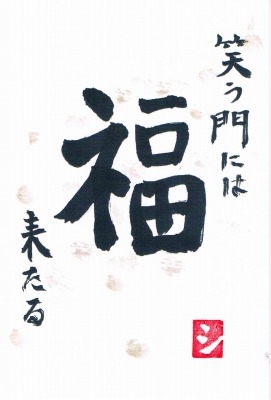 笑う門には
福
来たる
シ